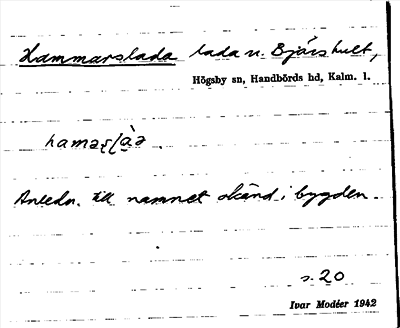 Hammarslada lada u. Bjärshult,
Högsby sn, Handbörds hd, Kalm. l.
Anledn. till namnet okänd i bygden.
s. 20
Ivar Modéer 1942